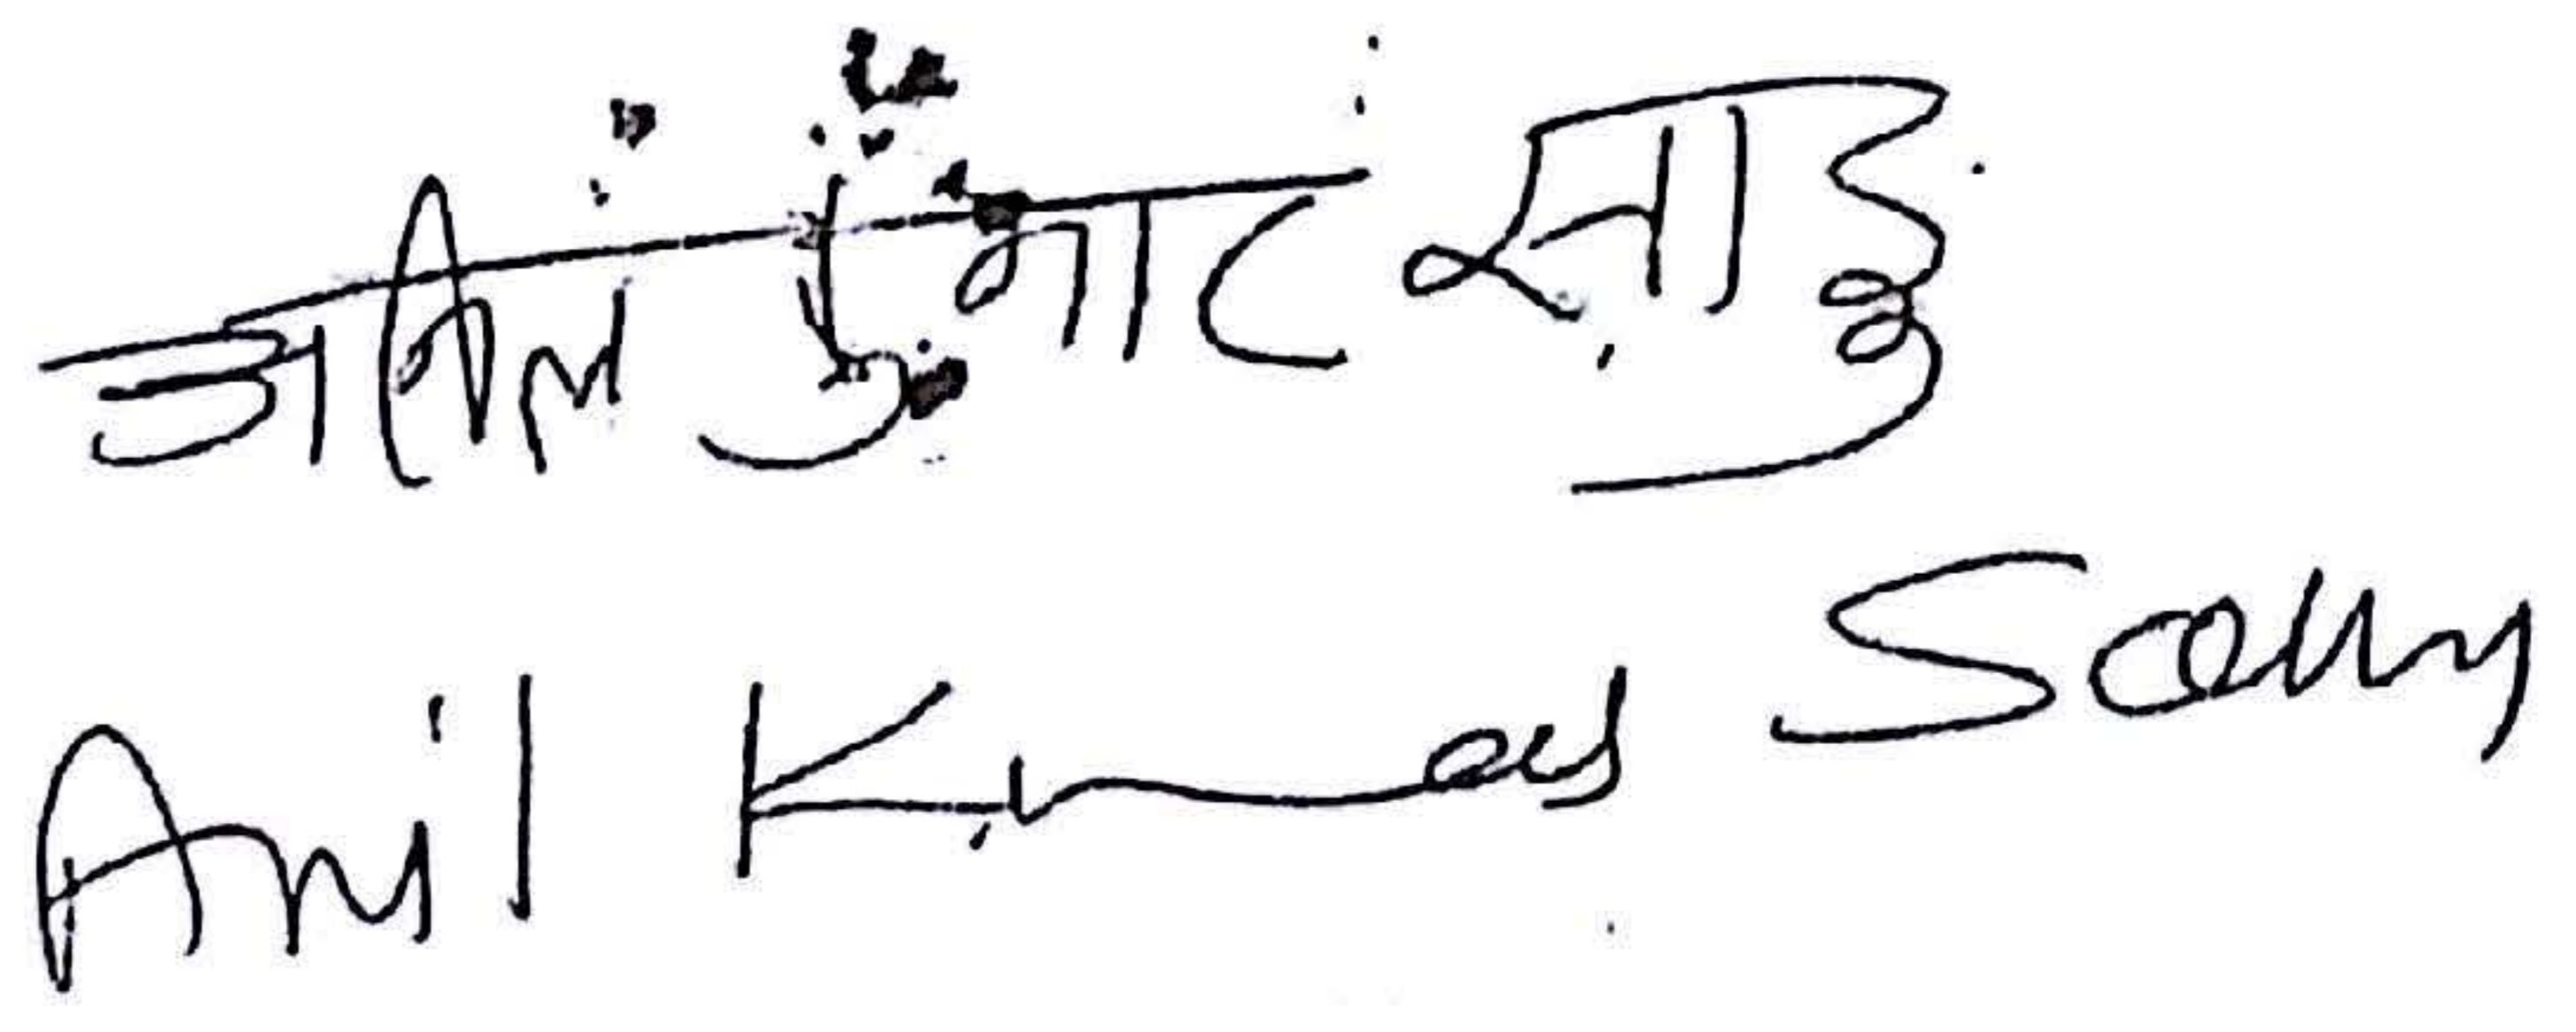 अनिल कुमार साहू
Anil Kumar Sahu